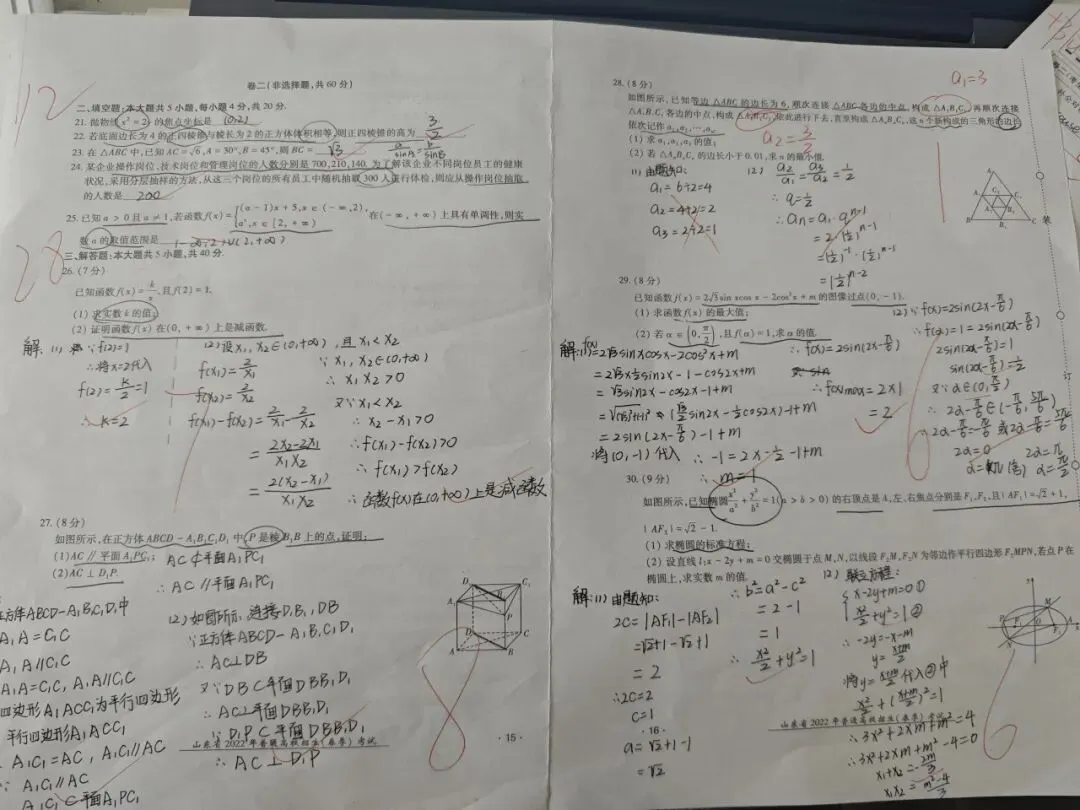 12
卷二(非选择题,共 60 分)
二、填空题:本大题共 5 小题,每小题 4 分,共 20 分.
21. 抛物线 x²=2y 的焦点坐标是
22. 若底面边长为 4 的正四棱锥与棱长为 2 的正方体体积相等,则正四棱锥的高为 3/2
23. 在△ABC 中,已知 AC=√6,A=30°,B=45°,则 BC= √3 a/sinA=b/sinB
24. 某企业操作岗位,技术岗位和管理岗位的人数分别是 700,210,140,为了解该企业不同岗位员工的健康
状况,采用分层抽样的方法,从这三个岗位的所有员工中随机抽取 300 人进行体检,则应从操作岗位抽取
的人数是 200
25. 已知 a>0 且 a≠1,若函数 f(x)={(a-1)x+5,x∈(-∞,2), a^x,x∈[2,+∞) 在(-∞,+∞)上具有单调性,则实
数 a 的取值范围是 (-∞,2)∪(2,+∞)
28
三、解答题:本大题共 5 小题,共 40 分.
26. (7 分)
已知函数 f(x)=k/x,且 f(2)=1.
(1) 求实数 k 的值;
(2) 证明函数 f(x) 在(0,+∞)上是减函数.
解:(1) ∵f(2)=1
∴将x=2代入
f(2)=k/2=1
∴k=2
(2)设x₁,x₂∈(0,+∞),且x₁<x₂
f(x₁)=2/x₁
f(x₂)=2/x₂
f(x₁)-f(x₂)=2/x₁-2/x₂
=(2x₂-2x₁)/x₁x₂
=2(x₂-x₁)/x₁x₂
∵x₁,x₂∈(0,+∞)
∴x₁x₂>0
又∵x₁<x₂
∴x₂-x₁>0
∴f(x₁)-f(x₂)>0
∴f(x₁)>f(x₂)
∴函数f(x)在(0,+∞)上是减函数
7
27. (8 分)
如图所示,在正方体 ABCD-A₁B₁C₁D₁ 中,P 是棱 B₁B 上的点,证明:
(1)AC∥平面 A₁PC₁;
(2)AC⊥D₁P.
正方体ABCD-A₁B₁C₁D₁中
A₁A=C₁C
A₁A∥C₁C
A₁A=C₁C,A₁A∥C₁C
四边形A₁ACC₁为平行四边形
平行四边形A₁ACC₁
A₁C₁=AC,A₁C₁∥AC
∵A₁C₁∥AC
A₁C₁⊂平面A₁PC₁
AC⊄平面A₁PC₁
∴AC∥平面A₁PC₁
(2)如图所示,连接D₁B₁,DB
∵正方体ABCD-A₁B₁C₁D₁
∴AC⊥DB
又∵DB⊂平面DBB₁D₁
∴AC⊥平面DBB₁D₁
∵D₁P⊂平面DBB₁D₁
∴AC⊥D₁P
8
D₁ C₁
A₁ B₁
P
D C
A B
山东省 2022 年普通高校招生(春季)考试
· 15 ·
28. (8 分)
a₁=3
如图所示,已知等边△ABC 的边长为 6,顺次连接△ABC 各边的中点,构成△A₁B₁C₁,再顺次连接
△A₁B₁C₁ 各边的中点,构成△A₂B₂C₂,依此进行下去,直至构成△AₙBₙCₙ,这 n 个新构成的三角形的边长
依次记作 a₁,a₂,…,aₙ.
a₂=3/2
(1) 求 a₁,a₂,a₃ 的值;
(2) 若△AₙBₙCₙ 的边长小于 0.01,求 n 的最小值.
(1)由题知:
a₁=6÷2=4
a₂=4÷2=2
a₃=2÷2=1
(2)a₂/a₁=a₃/a₂=1/2
∴q=1/2
∴aₙ=a₁·qⁿ⁻¹
=2·(1/2)ⁿ⁻¹
=(1/2)⁻¹·(1/2)ⁿ⁻¹
=(1/2)ⁿ⁻²
1
装
订
29. (8 分)
已知函数 f(x)=2√3sin xcos x-2cos²x+m 的图像过点(0,-1).
(1) 求函数 f(x) 的最大值;
(2) 若 α∈(0,π/2),且 f(α)=1,求 α 的值.
解:(1)f(x)=2√3sinxcosx-2cos²x+m
=2√3×½sin2x-1-cos2x+m
=√3sin2x-cos2x-1+m
=√(√3)²+1²(√3/2sin2x-½cos2x)-1+m
=2sin(2x-π/6)-1+m
将(0,-1)代入 ∴-1=2×-½-1+m
∴m=1
∴f(x)=2sin(2x-π/6)
∴f(x)max=2×1
=2
(2)∵f(x)=2sin(2x-π/6)
∴f(α)=1=2sin(2α-π/6)
2sin(2α-π/6)=1
sin(2α-π/6)=½
又∵α∈(0,π/2)
∴2α-π/6∈(-π/6,5π/6)
∴2α-π/6=-π/6或2α-π/6=5π/6
2α=0 2α=π
(舍) α=π/2
6
30. (9 分)
如图所示,已知椭圆x²/a²+y²/b²=1(a>b>0) 的右顶点是 A,左、右焦点分别是 F₁,F₂,且|AF₁|=√2+1,
|AF₂|=√2-1.
(1) 求椭圆的标准方程;
(2) 设直线 l:x-2y+m=0 交椭圆于点 M,N,以线段 F₂M,F₂N 为邻边作平行四边形 F₂MPN,若点 P 在
椭圆上,求实数 m 的值.
解:(1)由题知:
2c=|AF₁|-|AF₂|
=√2+1-√2+1
=2
∴2c=2
c=1
a=√2+1-1
=√2
∴b²=a²-c²
=2-1
=1
∴x²/2+y²=1
(2)联立方程:
{x-2y+m=0①
x²/2+y²=1②
∴-2y=-x-m
y=(x+m)/2
将y=(x+m)/2代入②中
x²/2+((x+m)/2)²=1
∴3x²+2xm+m²=4
∴3x²+2xm+m²-4=0
x₁+x₂=-2m/3
x₁x₂=(m²-4)/3
6
山东省 2022 年普通高校招生(春季)考试
· 16 ·